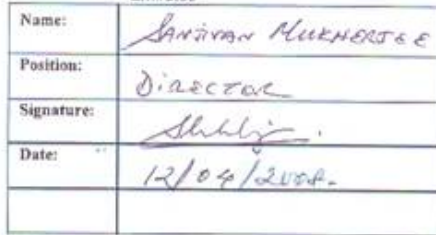 Name: SANJIVAN MUKHERJEE
Position: DIRECTOR
Signature:
Date: 12/04/2008.